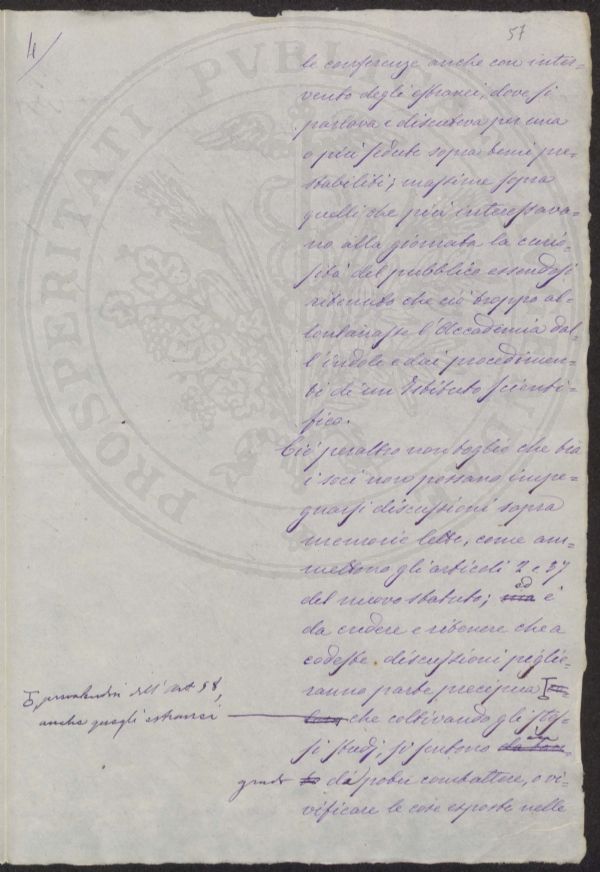 4/
57
le conferenze anche con inter=
vento degli estranei, dove si
parlava e discuteva per una
o più sedute sopra temi pre=
stabiliti; massime sopra
quelli che più interessava=
no alla giornata la curio=
sità del pubblico essendosi
ritenuto che ciò troppo al=
lontanasse l'Accademia dal=
l'indole e dai procedimen=
ti di un Istituto scienti=
fico.
Ciò peraltro non toglie che tra
i soci non possano impe=
gnarsi discussioni sopra
memorie lette, come am=
mettono gli articoli 2 e 37
del nuovo statuto; ed è
da credere e ritenere che a
codeste discussioni piglie=
ranno parte precipua
prevalendosi dell'art 58,
anche quegli estranei
che coltivando gli stes=
si studj, si sentono
grado di poter combattere, o vi=
vificare le cose esposte nelle
PROSPERITATI PVBLICAE